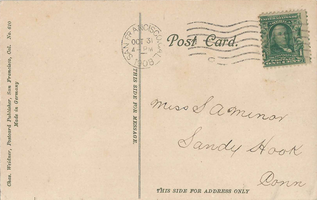 Chas. Weidner, Postcard Publisher, San Francisco, Cal. No. 620
Made in Germany
THIS SIDE FOR MESSAGE.
SAN FRANCISCO, CAL.
OCT 3
1908
Post Card.
Miss S A Minor
Sandy Hook
Conn
THIS SIDE FOR ADDRESS ONLY